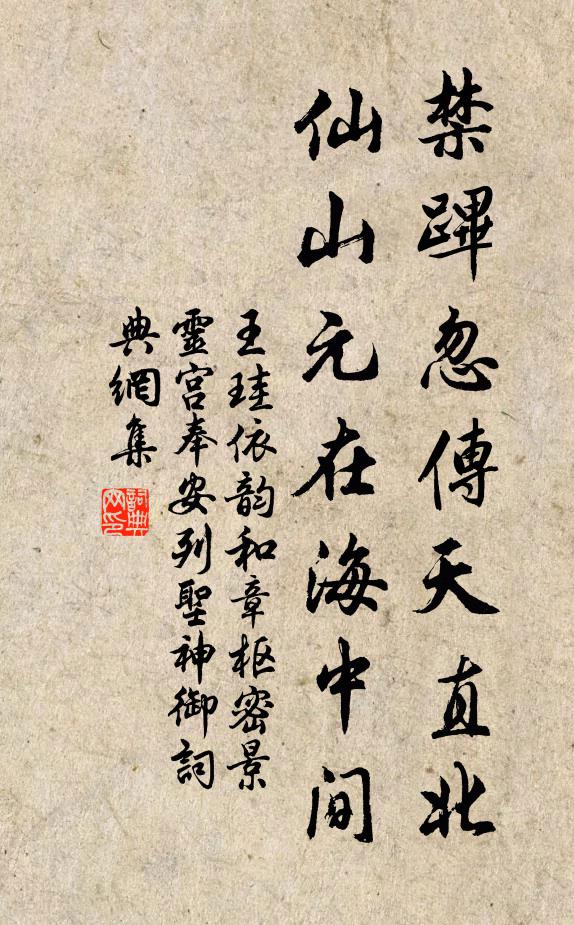 禁蹕忽傳天直北
仙山元在海中間
王珪依韵和章枢密景
靈宮奉安列聖神御詞
典網集
詞典网印